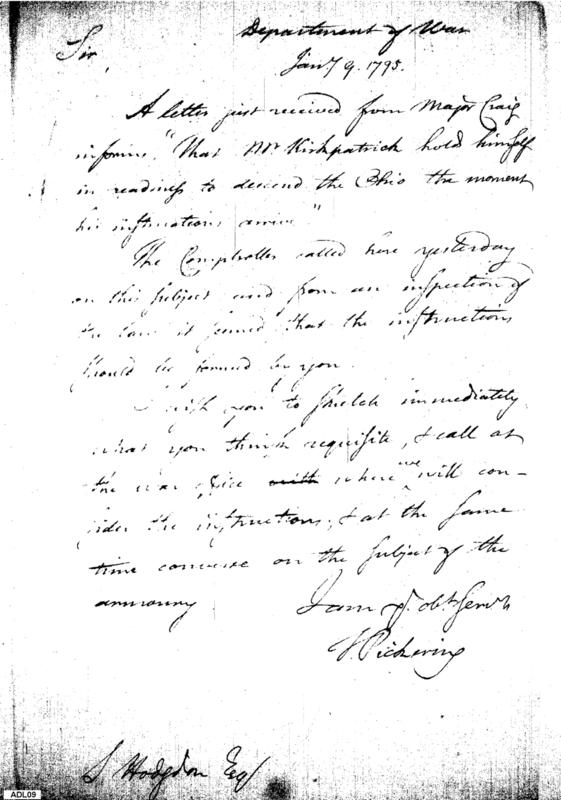 Department of War
Sir
Jany 9. 1795.
A letter just received from Major Craig
informs, "That Mr Kirkpatrick hold himself
in readiness to descend the Ohio the moment
his instructions arrive"
The Comptroller called here yesterday
on this subject and from an inspection of
the law it seemed that the instructions
should be formed by you.
I wish you to sketch immediately
what you think requisite, & call at
the war office with where we will con-
sider the instructions, & at the same
time converse on the subject of the
armoury
I am Yr. obt Servt
T. Pickering
S Hodgdon Esqr
ADL09